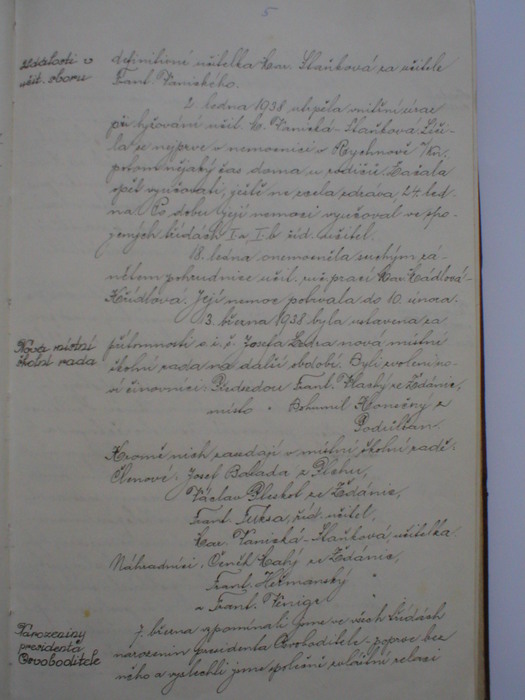 5
Události v
učit. sboru
definitivně učitelka Kar. Staňková za učitele
Frant. Vanického.
2. ledna 1938 utrpěla vnitřní úraz
při lyžování učit. K. Vanická-Staňková. Léči-
la se nejprve v nemocnici v Rychnově n/Kn.
potom nějaký čas doma u rodičů. Začala
opět vyučovati, ještě ne zcela zdráva 24. led-
na. Po dobu její nemoci vyučoval ve spo-
jených třídách I. a I.b říd. učitel.
18. ledna onemocněla suchým zá-
nětem pohrudnice učit. ruč. prací Kádlová-
Křídlová. Její nemoc potrvala do 10. února.
Nová místní
školní rada
3. března 1938 byla ustavena za
přítomnosti o. š. Josefa nová místní
školní rada na další období. Byli zvoleni no-
ví činovníci: Předsedou Frant. Vlachý ze Ždánic,
místo " Bohumil Konečný z
Podrlšan.
Kromě nich zasedají v místní školní radě:
Členové: Josef Balada z
Václav Pleskot ze Ždánic,
Frant. Fuksa, říd. učitel,
Kar. Vanická-Staňková, učitelka.
Náhradníci: Čeněk ze Ždánic,
Frant. Heřmanský "
a Frant. "
Narozeniny
presidenta
Osvoboditele
7. března vzpomínali jsme ve všech třídách
narozenin presidenta Osvoboditele poprve bez
něho a vyslechli jsme společně rozhlasní relaci